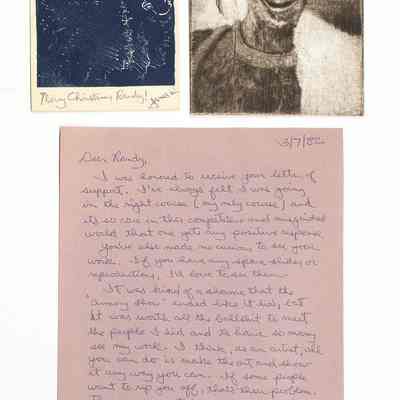 Merry Christmas Randy!
3/7/82
Dear Randy,
I was honored to receive your letter of
support. I've always felt I was going
in the right course (my only course) and
its so rare in this competitive and misguided
world that one gets any positive response.
You've also made me curious to see your
work. If you have any spare slides or
reproductions, I'd love to see them.
It was kind of a shame that the
"armory show" ended like it did, but
It was worth all the bullshit to meet
the people I did and to have so many
see my work. I think, as an artist, all
you can do is make the art and show
it any way you can. If some people
want to rip you off, thats their problem.